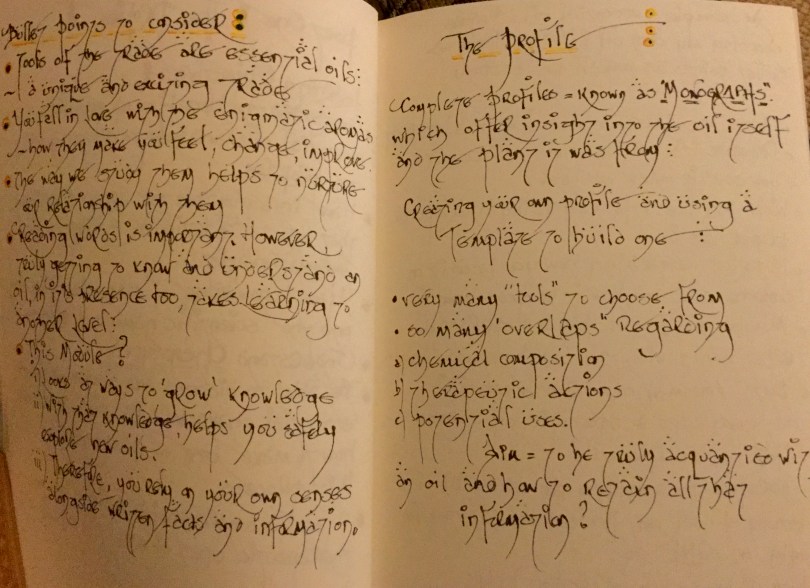 Bullet points to consider :
• Tools of the trade are essential oils:
~ a unique and exciting trade
• You fall in love with the enigmatic aromas
~ how they make you feel, change, improve.
• The way we study them helps to nurture
our relationship with them
• (Reading) words is important. However,
truly getting to know and understand an
oil, in it's presence too, takes learning to
another level:
• This Module?
i) Looks at ways to 'grow' knowledge
ii) with that knowledge, helps you safely
explore new oils.
iii) Therefore, you rely on your own senses
alongside written facts and information.
The profile
Complete profiles = known as "MONOGRAPHS"
which offer insight into the oil itself
and the plant it was from:
Creating your own profile and using a
Template to build one :
• very many "tools" to choose from
• so many "overlaps" regarding
a) chemical composition
b) therapeutic actions
c) potential uses.
Aim = to be truly acquantied wit
an oil and how to retain all that
information?